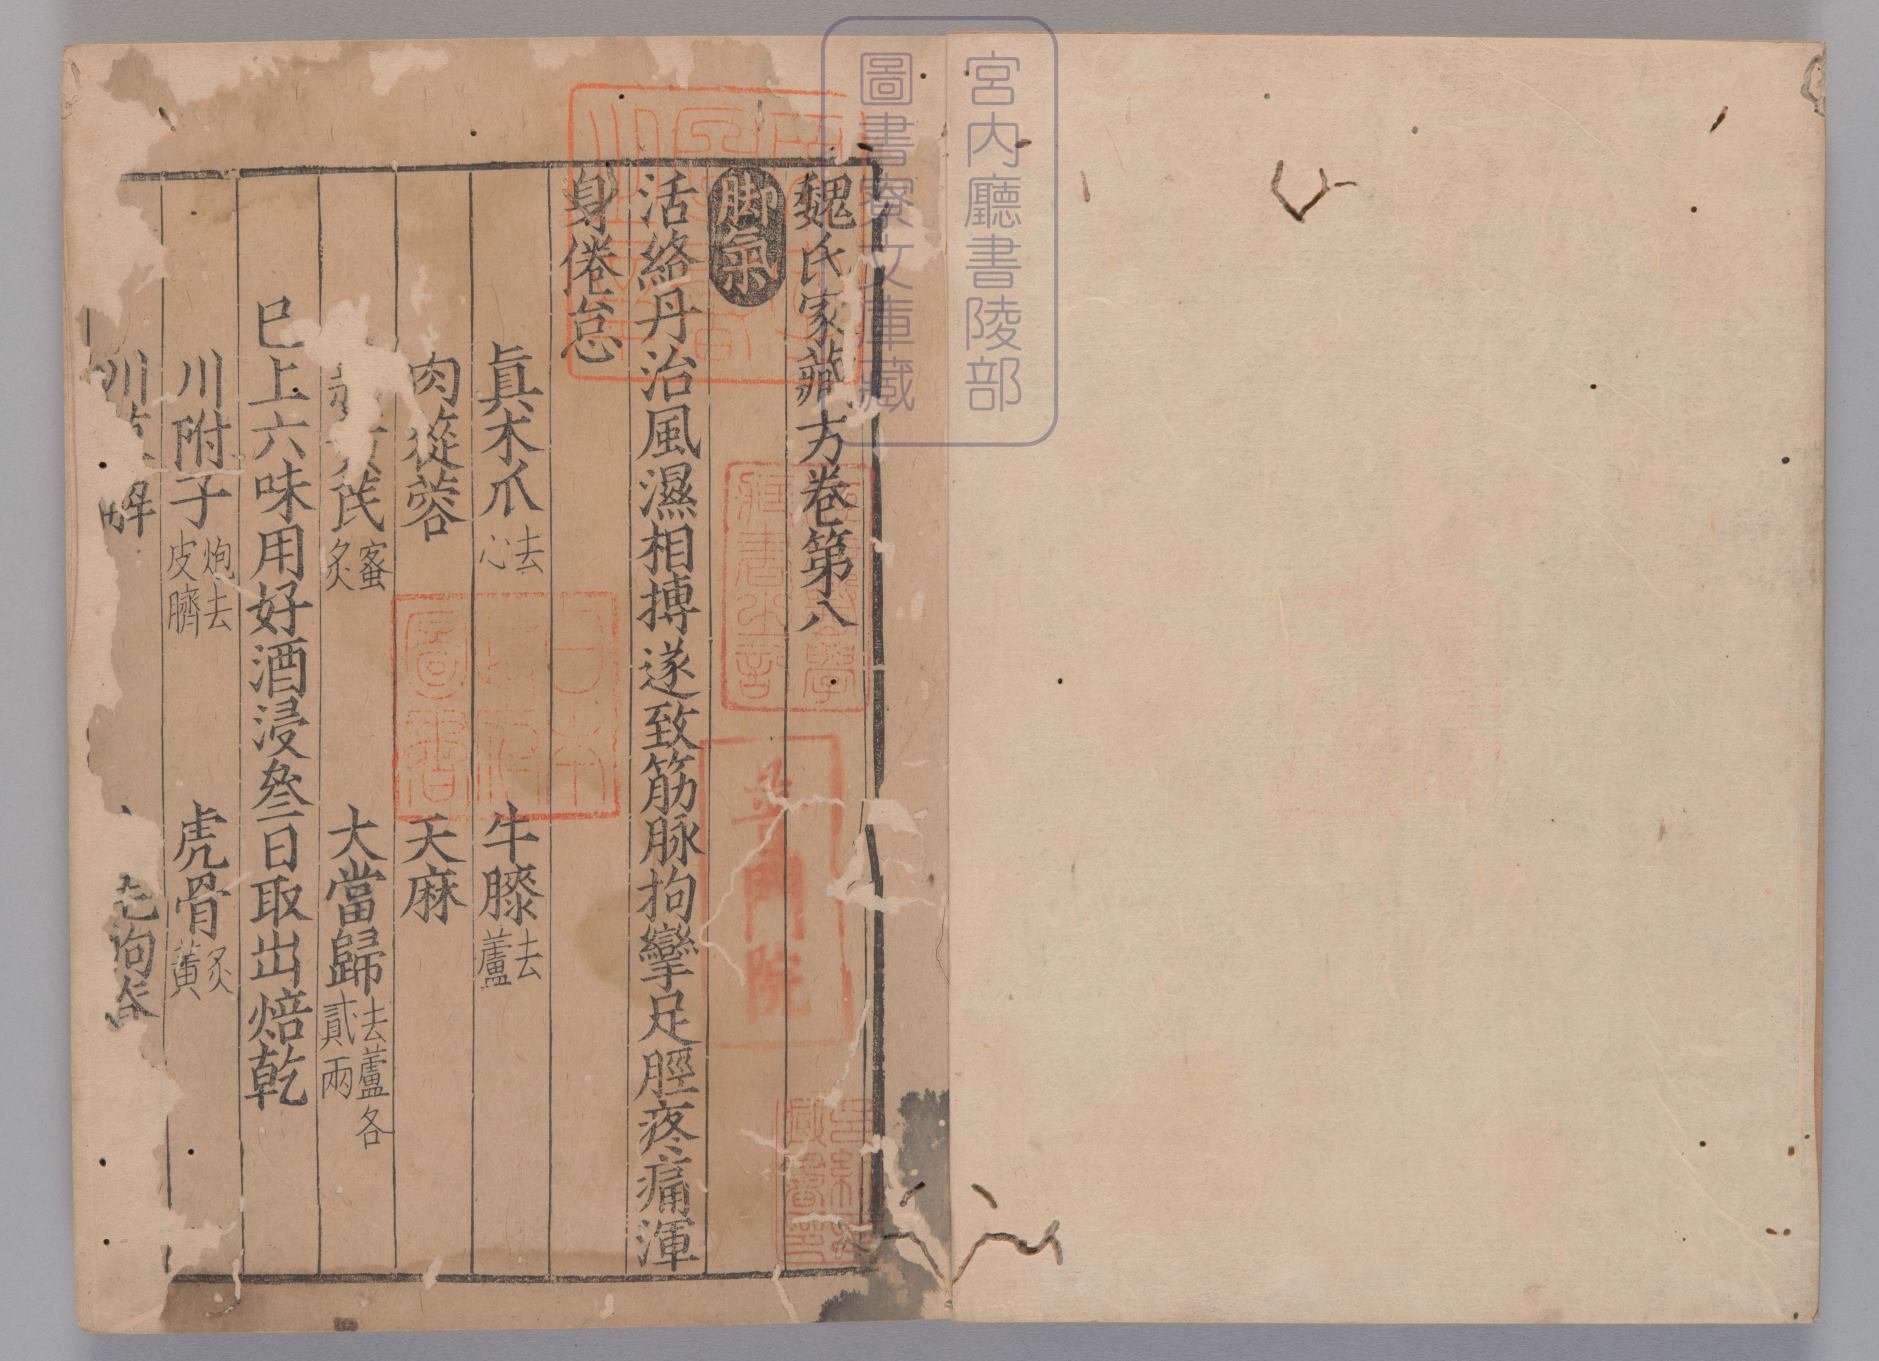 宮内廳書陵部
圖書寮文庫藏
魏氏家藏方卷第八
脚氣
活絡丹治風濕相搏遂致筋脉拘攣足脛疼痛渾
身倦怠
眞木爪去心 牛膝去蘆
肉蓯蓉 天麻
芪蜜炙 大當歸去蘆各貳兩
巳上六味用好酒浸叄日取出焙乾
川附子炮去皮臍 虎骨炙黃
川
普門院
日本
圖書